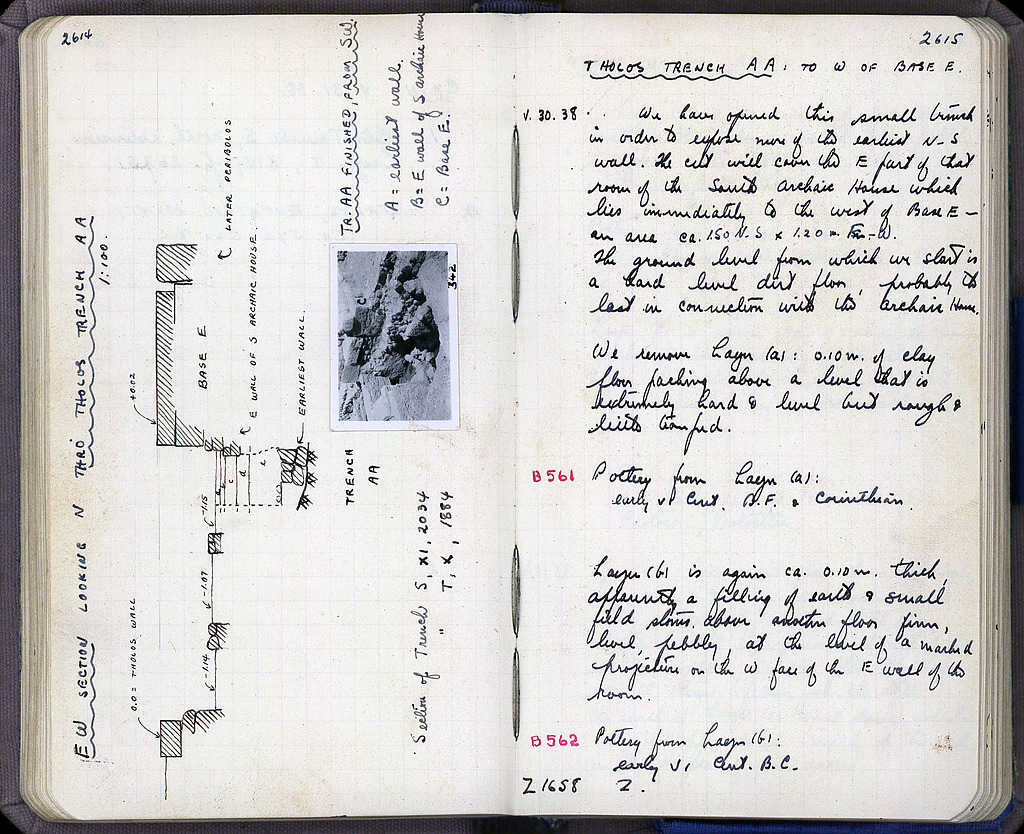 2614
EW SECTION LOOKING N THRO THOLOS TRENCH AA
1:100.
0.0 = THOLOS WALL
+0.02
BASE E
LATER PERIBOLOS
E WALL OF S ARCHAIC HOUSE.
EARLIEST WALL.
-1.14
-1.07
-1.15
a
c
d
e
TRENCH
AA
TR. AA FINISHED, FROM SW.
A = earliest wall.
B = E wall of S archaic House
C = Base E.
342
C
Section of Trench S, XI, 2034
" T, X, 1884
2615
THOLOS TRENCH AA: TO W OF BASE E.
V. 30. 38. We have opened this small trench
in order to expose more of the earliest N-S
wall. The cut will cover the E part of that
room of the South Archaic House which
lies immediately to the west of Base E –
an area ca. 1.50 N-S x 1.20 m E-W.
The ground level from which we start is
a hard level dirt floor, probably the
last in connection with the Archaic House.
We remove Layer (a): 0.10 m. of clay
floor packing above a level that is
extremely hard & level but rough &
bumped.
B 561 Pottery from Layer (a):
early V Cent. B.F. & Corinthian.
Layer (b) is again ca. 0.10 m. thick,
apparently a filling of earth & small
field stones above another floor firm,
level, pebbly, at the level of a marked
projection on the W face of the E wall of the
room.
B 562 Pottery from Layer (b):
early V, Cent. B.C.
Z 1658 Z.